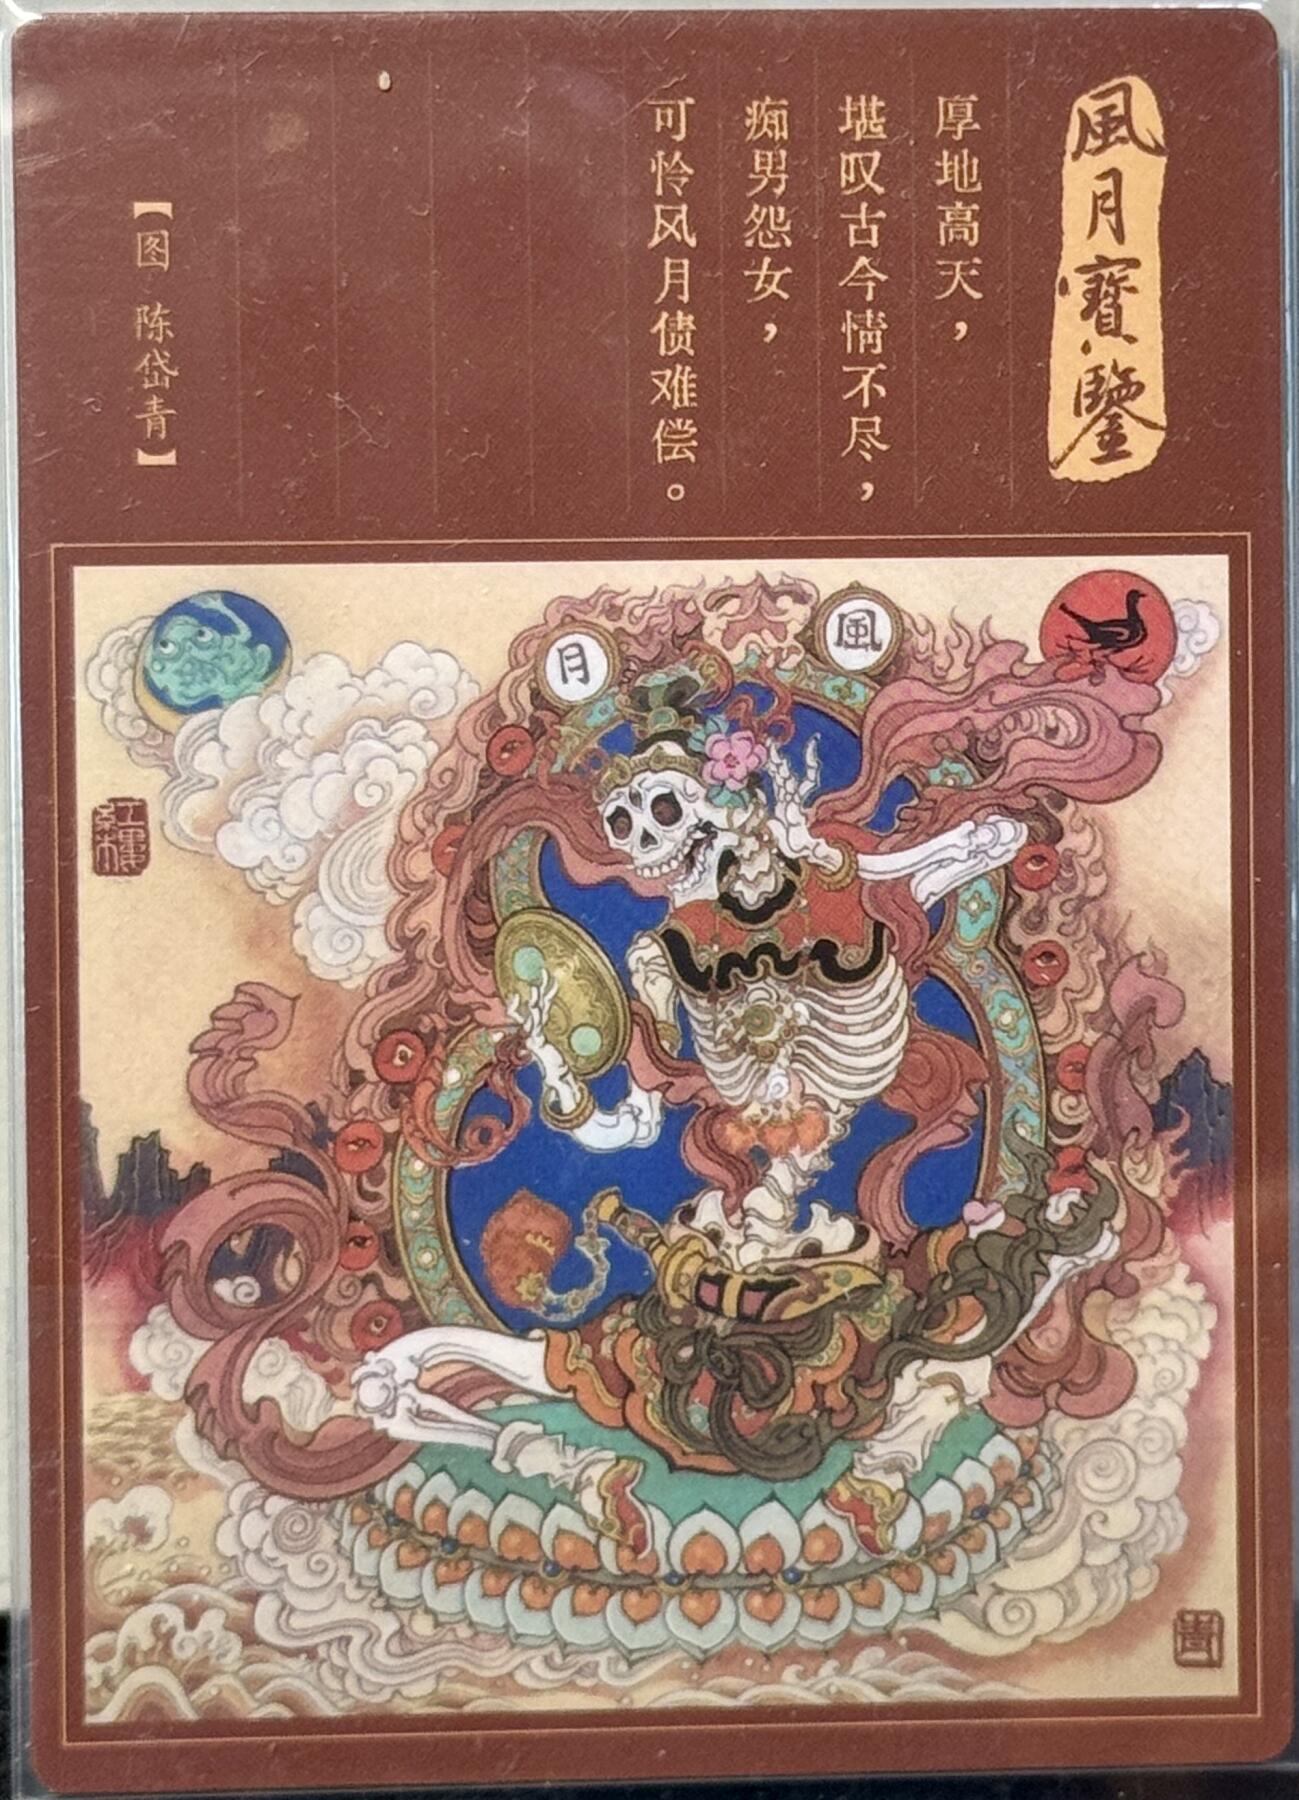 風月寶鑒
厚地高天，
堪叹古今情不尽，
痴男怨女，
可怜风月债难偿。
【图 陈岱青】
月
風